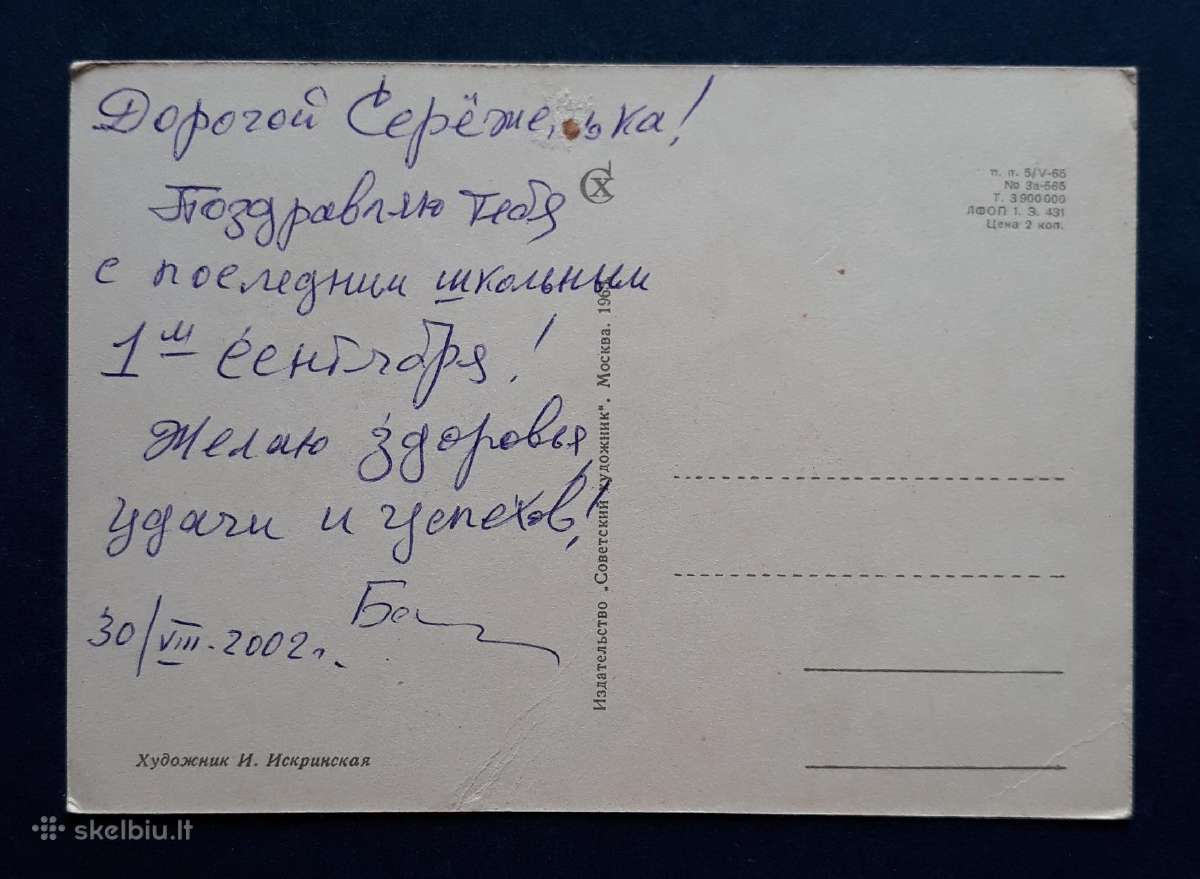 Дорогой Серёженька!
Поздравляю тебя
с последним школьным
1м сентября!
Желаю здоровья,
удачи и успехов!
30/VIII-2002г.
Художник И. Искринская
Издательство „Советский художник". Москва.
п. п. 5/V-65
№ 3а-565
Т. 3 900 000
ЛФОП 1. Э. 431
Цена 2 коп.
skelbiu.lt